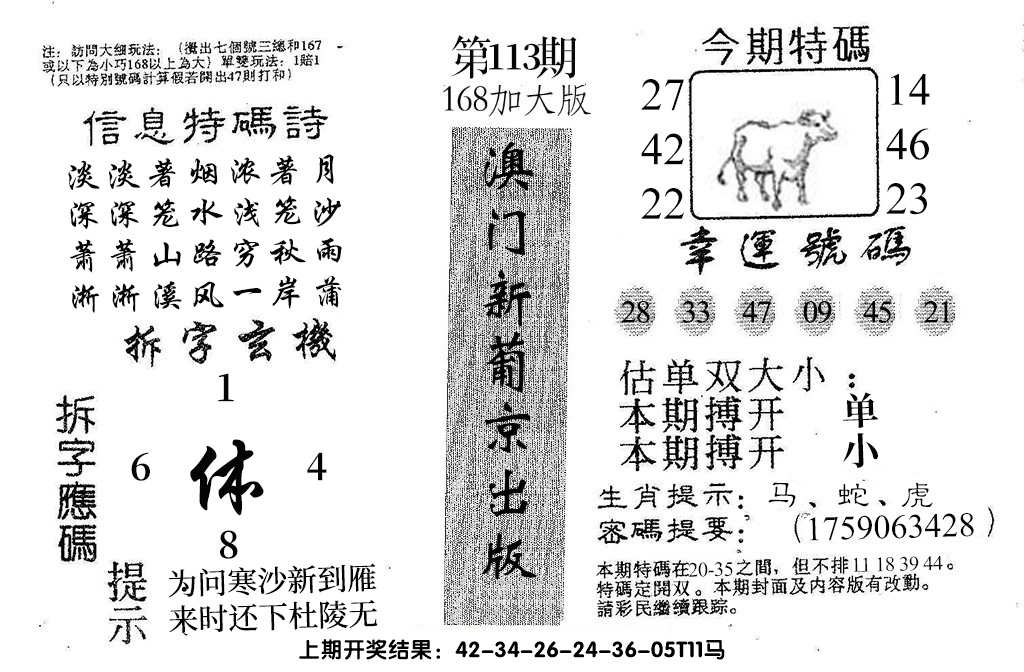 注：訪問大细玩法：(攪出七個號三總和167
或以下為小巧168以上為大）單雙玩法：1賠1
（只以特別號碼計算假若開出47則打和）
信息特碼詩
淡淡著烟浓著月
深深笼水浅笼沙
萧萧山路穷秋雨
淅淅溪风一岸蒲
拆字玄機
1
拆字應碼
6 休 4
8
提示
为问寒沙新到雁
来时还下杜陵无
第113期
168加大版
澳门新葡京出版
今期特碼
27 14
42 46
22 23
幸運號碼
28 33 47 09 45 21
估单双大小：
本期搏开 单
本期搏开 小
生肖提示：马、蛇、虎
密碼提要：（1759063428）
本期特碼在20-35之間，但不排11 18 39 44。
特碼定開双。本期封面及内容版有改動。
請彩民繼續跟踪。
上期开奖结果：42-34-26-24-36-05T11马